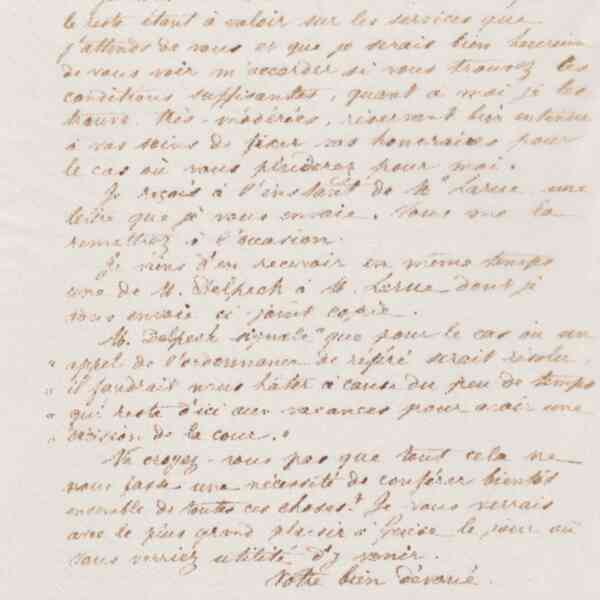 le reste étant à valoir sur les services que
j'attends de vous et que je serais bien heureux
de vous voir m'accorder si vous trouvez les
conditions suffisantes, quant à moi je les
trouve très-modérées, réservant bien entendu
à vos soins de fixer vos honoraires pour
le cas où vous plaiderez pour moi.
Je reçois à l'instant de Me Larue une
lettre que je vous envoie. Vous me la
remettrez à l'occasion.
Je viens d'en recevoir en même temps
une de M. Delpech à M. Larue dont je
vous envoie ci joint copie.
M. Delpech signale "que pour le cas où un
" appel de l'ordonnance de référé serait résolu,
" il faudrait nous hâter à cause du peu de temps
" qui reste d'ici aux vacances pour avoir une
" décision de la cour."
Ne croyez-vous pas que tout cela ne
nous fasse une nécessité de conférer bientôt
ensemble de toutes ces choses? Je vous verrais
avec le plus grand plaisir à Guise le jour où
vous verriez utilité d'y venir.
Votre bien dévoué.